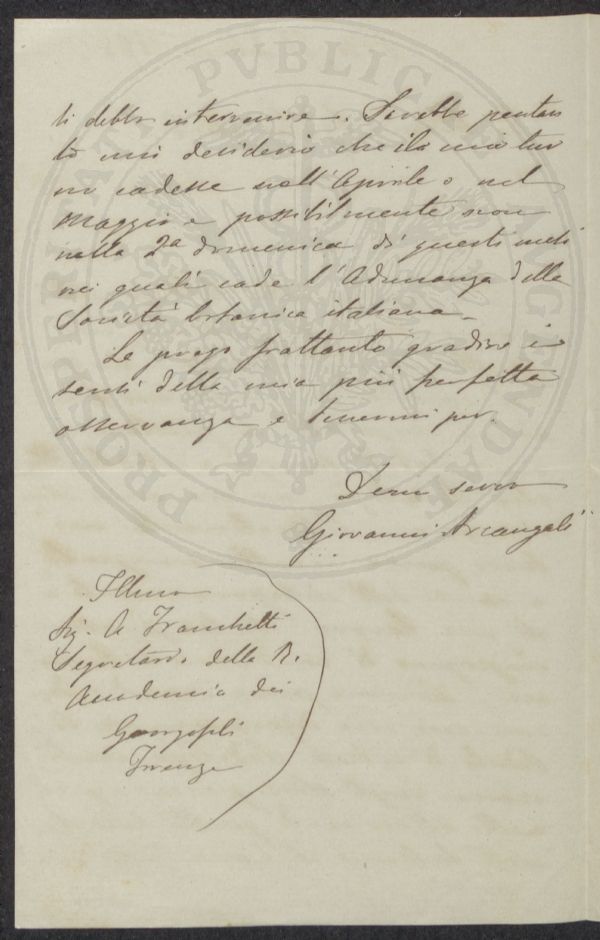 li debbo intervenire. Sarebbe pertan
to mio desiderio che il mio tur
no cadesse nell'Aprile o nel
Maggio e possibilmente non
nella 2ª domenica di questi mesi
nei quali cade l'Adunanza della
Società botanica italiana.
La prego frattanto gradire i
sensi della mia più perfetta
osservanza e tenermi per.
Devm servo
Giovanni Arcangeli
Illmo
Sig. A Franchetti
Segretario della R.
Accademia dei
Georgofili
Firenze
PROSPERITATI PVBLICAE AVGENDAE